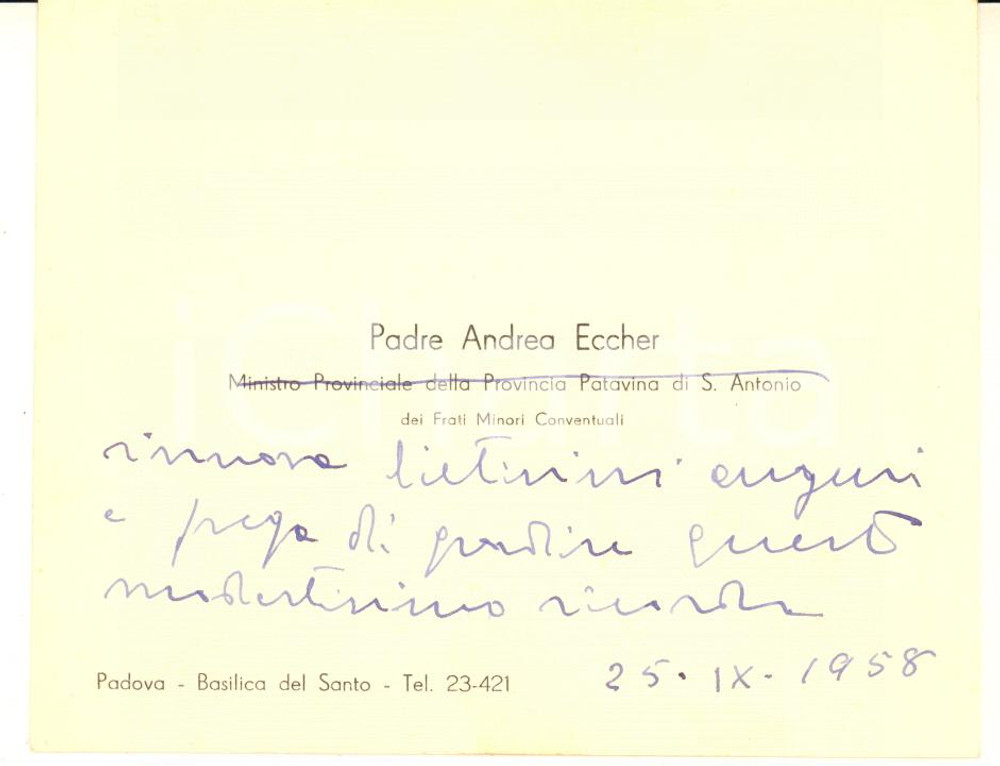 Padre Andrea Eccher
Ministro Provinciale della Provincia Patavina di S. Antonio
dei Frati Minori Conventuali
rinnova lietissimi auguri
e prega di gradire questo
modestissimo ricordo
25.IX.1958
Padova - Basilica del Santo - Tel. 23-421
iCharta